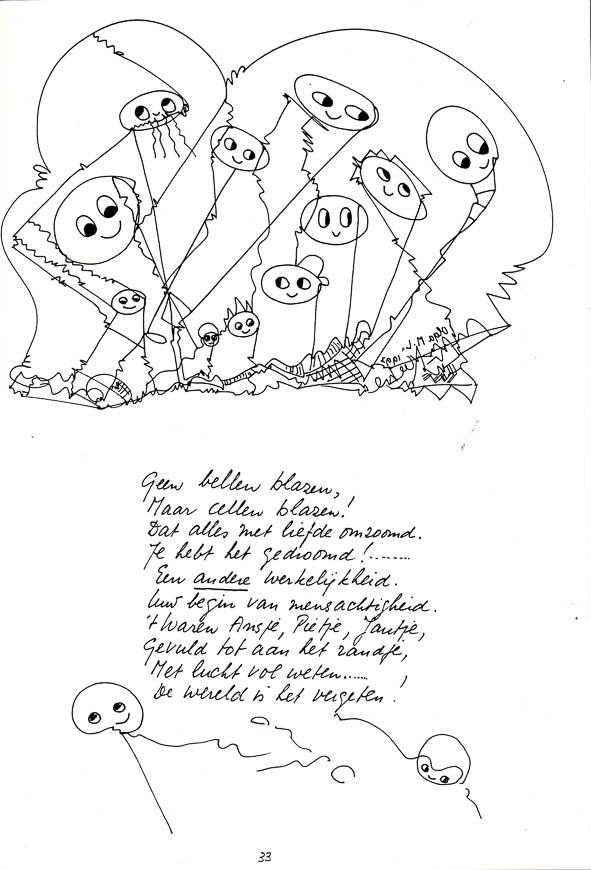 Geen bellen blazen,
Maar cellen blazen!
Dat alles met liefde omzoomd.
Je hebt het gedroomd!........
Een andere werkelijkheid.
Uw begin van mensachtigheid.
't Waren Ansje, Pietje, Jantje,
Gevuld tot aan het randje,
Met lucht vol weten......
De wereld is het vergeten!
33